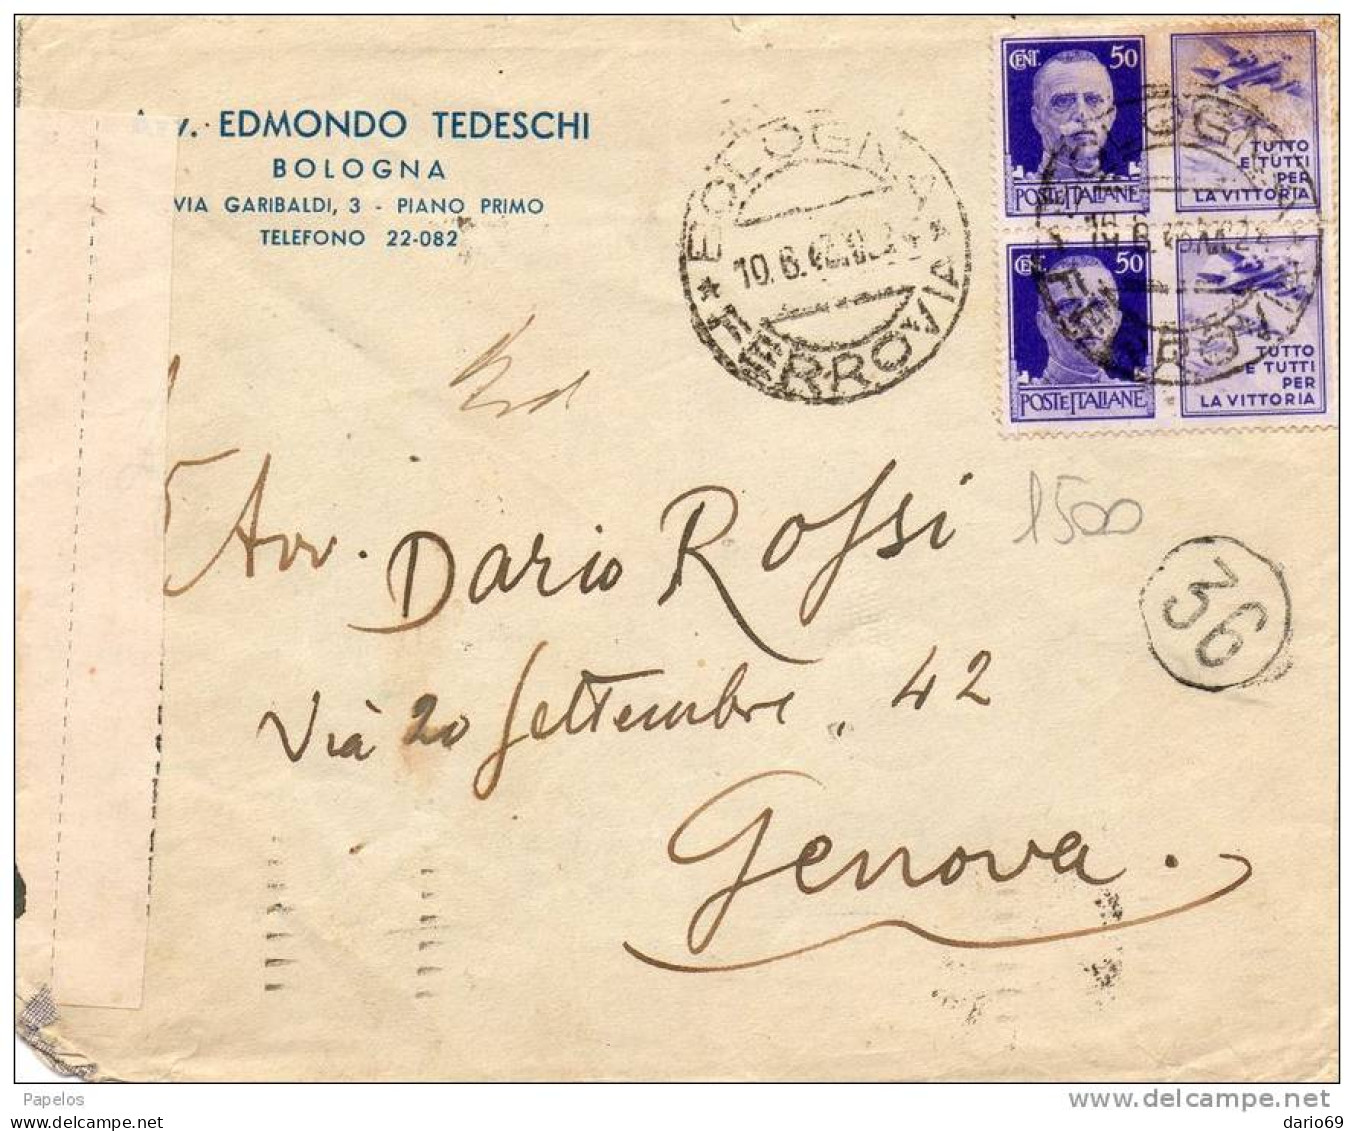 Avv. EDMONDO TEDESCHI
BOLOGNA
VIA GARIBALDI, 3 - PIANO PRIMO
TELEFONO 22-082
BOLOGNA
FERROVIA
CENT. 50
POSTE ITALIANE
TUTTO
E TUTTI
PER
LA VITTORIA
CENT. 50
POSTE ITALIANE
TUTTO
E TUTTI
PER
LA VITTORIA
BOLOGNA
FERROVIA
Avv. Dario Rossi
1500
36
Via 20 Settembre. 42
Genova.
Papelos
www.delcampe.net
dario69